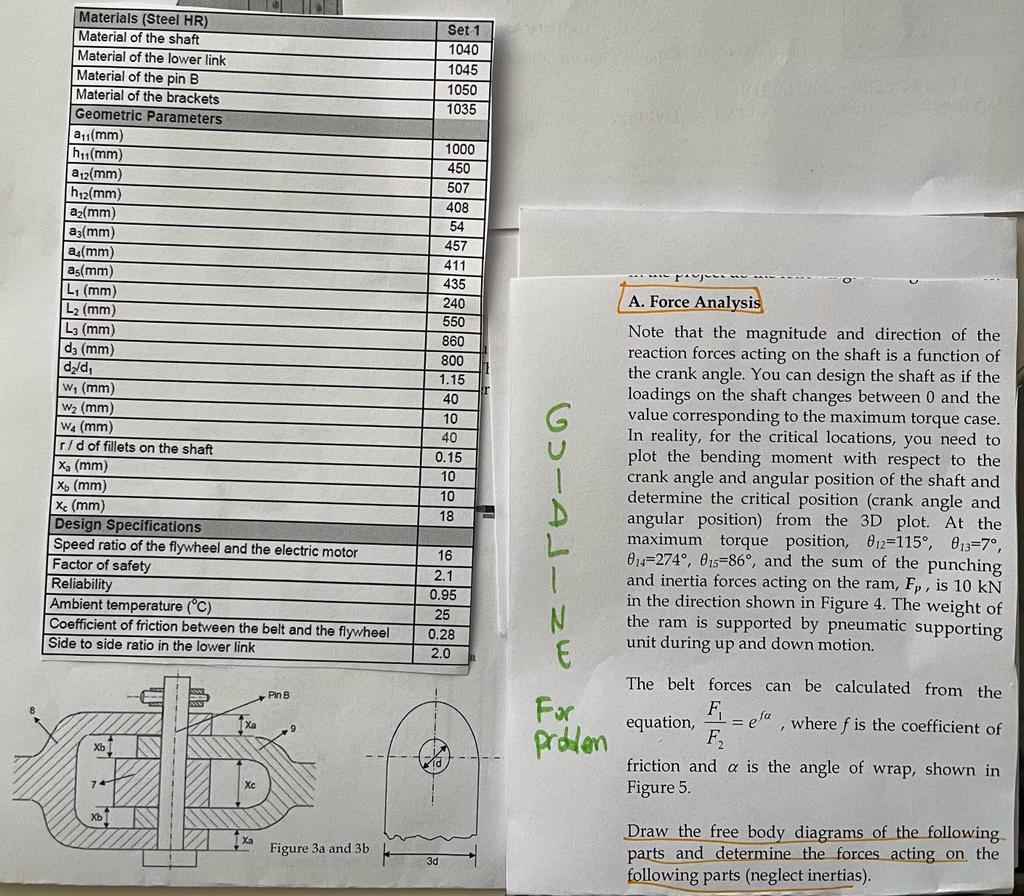 Materials (Steel HR) Set 1
Material of the shaft 1040
Material of the lower link 1045
Material of the pin B 1050
Material of the brackets 1035
Geometric Parameters
a11(mm) 1000
h11(mm) 450
a12(mm) 507
h12(mm) 408
a2(mm) 54
a3(mm) 457
a4(mm) 411
a5(mm) 435
L1 (mm) 240
L2 (mm) 550
L3 (mm) 860
d3 (mm) 800
d2/d1 1.15
w1 (mm) 40
w2 (mm) 10
w4 (mm) 40
r / d of fillets on the shaft 0.15
xa (mm) 10
xb (mm) 10
xc (mm) 18
Design Specifications
Speed ratio of the flywheel and the electric motor 16
Factor of safety 2.1
Reliability 0.95
Ambient temperature (°C) 25
Coefficient of friction between the belt and the flywheel 0.28
Side to side ratio in the lower link 2.0
8
Pin B
Xa
9
Xb
7
Xc
Xb
Xa
Figure 3a and 3b
d
3d
GUIDLINE
For
problem
A. Force Analysis
Note that the magnitude and direction of the
reaction forces acting on the shaft is a function of
the crank angle. You can design the shaft as if the
loadings on the shaft changes between 0 and the
value corresponding to the maximum torque case.
In reality, for the critical locations, you need to
plot the bending moment with respect to the
crank angle and angular position of the shaft and
determine the critical position (crank angle and
angular position) from the 3D plot. At the
maximum torque position, θ12=115°, θ13=7°,
θ14=274°, θ15=86°, and the sum of the punching
and inertia forces acting on the ram, Fp , is 10 kN
in the direction shown in Figure 4. The weight of
the ram is supported by pneumatic supporting
unit during up and down motion.
The belt forces can be calculated from the
equation, F1/F2 = e^fα , where f is the coefficient of
friction and α is the angle of wrap, shown in
Figure 5.
Draw the free body diagrams of the following
parts and determine the forces acting on the
following parts (neglect inertias).